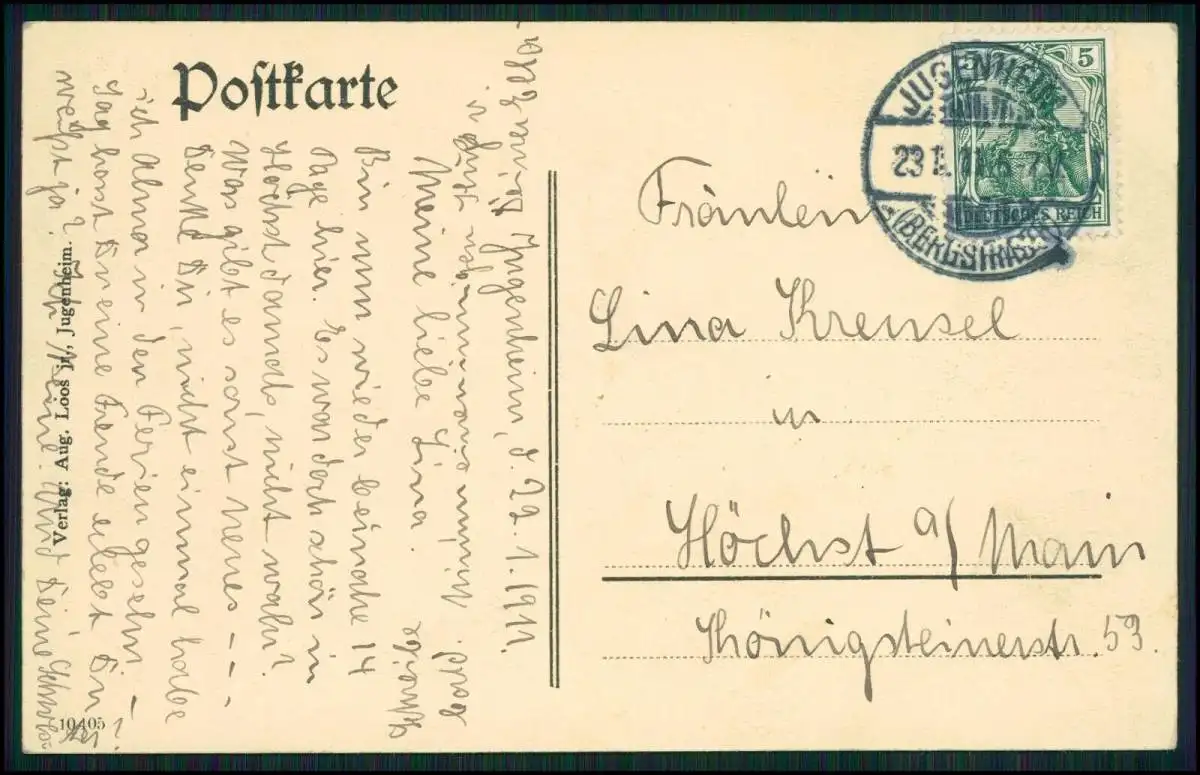 Postkarte
Jugenheim, d. 22.1.1911.
Meine liebe Lina!
Bin nun wieder beinahe 14
Tage hier. Es war doch schön in
Höchst damals, nicht wahr?
Was gibt es sonst Neues - - -
Denke Dir, nicht einmal habe
ich Alma in den Ferien gesehn. -
Sag hast Du eine Freude erlebt Du
weißt ja? Und Deine Schwes-
ter?
Schreibe
bald
Deiner Ella
Verlag: Aug. Loos jr., Jugenheim.
10405
5
DEUTSCHES REICH
JUGENHEIM
23 1. 11. 6-7 V.
(BERGSTRASSE)
Fräulein
Lina Krensel
in
Höchst a/ Main
Königsteinerstr. 53.